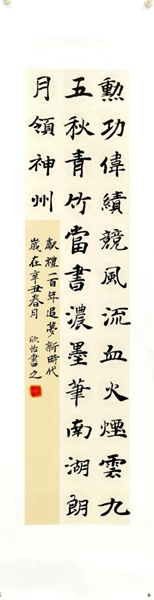 勲功偉績競風流血火煙雲九
五秋青竹當書濃墨筆南湖朗
月領神州
獻禮一百年追夢新時代
歲在辛丑春月 欣怡書之